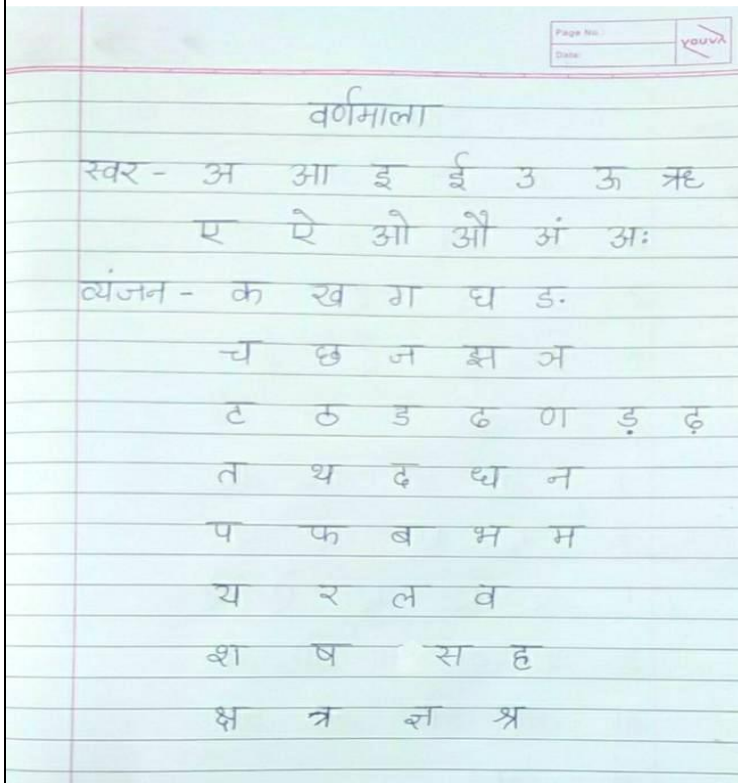 Page No.:
Date:
YOUVA
वर्णमाला
स्वर - अ आ इ ई उ ऊ ऋ
ए ऐ ओ औ अं अः
व्यंजन - क ख ग घ ङ
च छ ज झ ञ
ट ठ ड ढ ण ड़ ढ़
त थ द ध न
प फ ब भ म
य र ल व
श ष स ह
क्ष त्र ज्ञ श्र